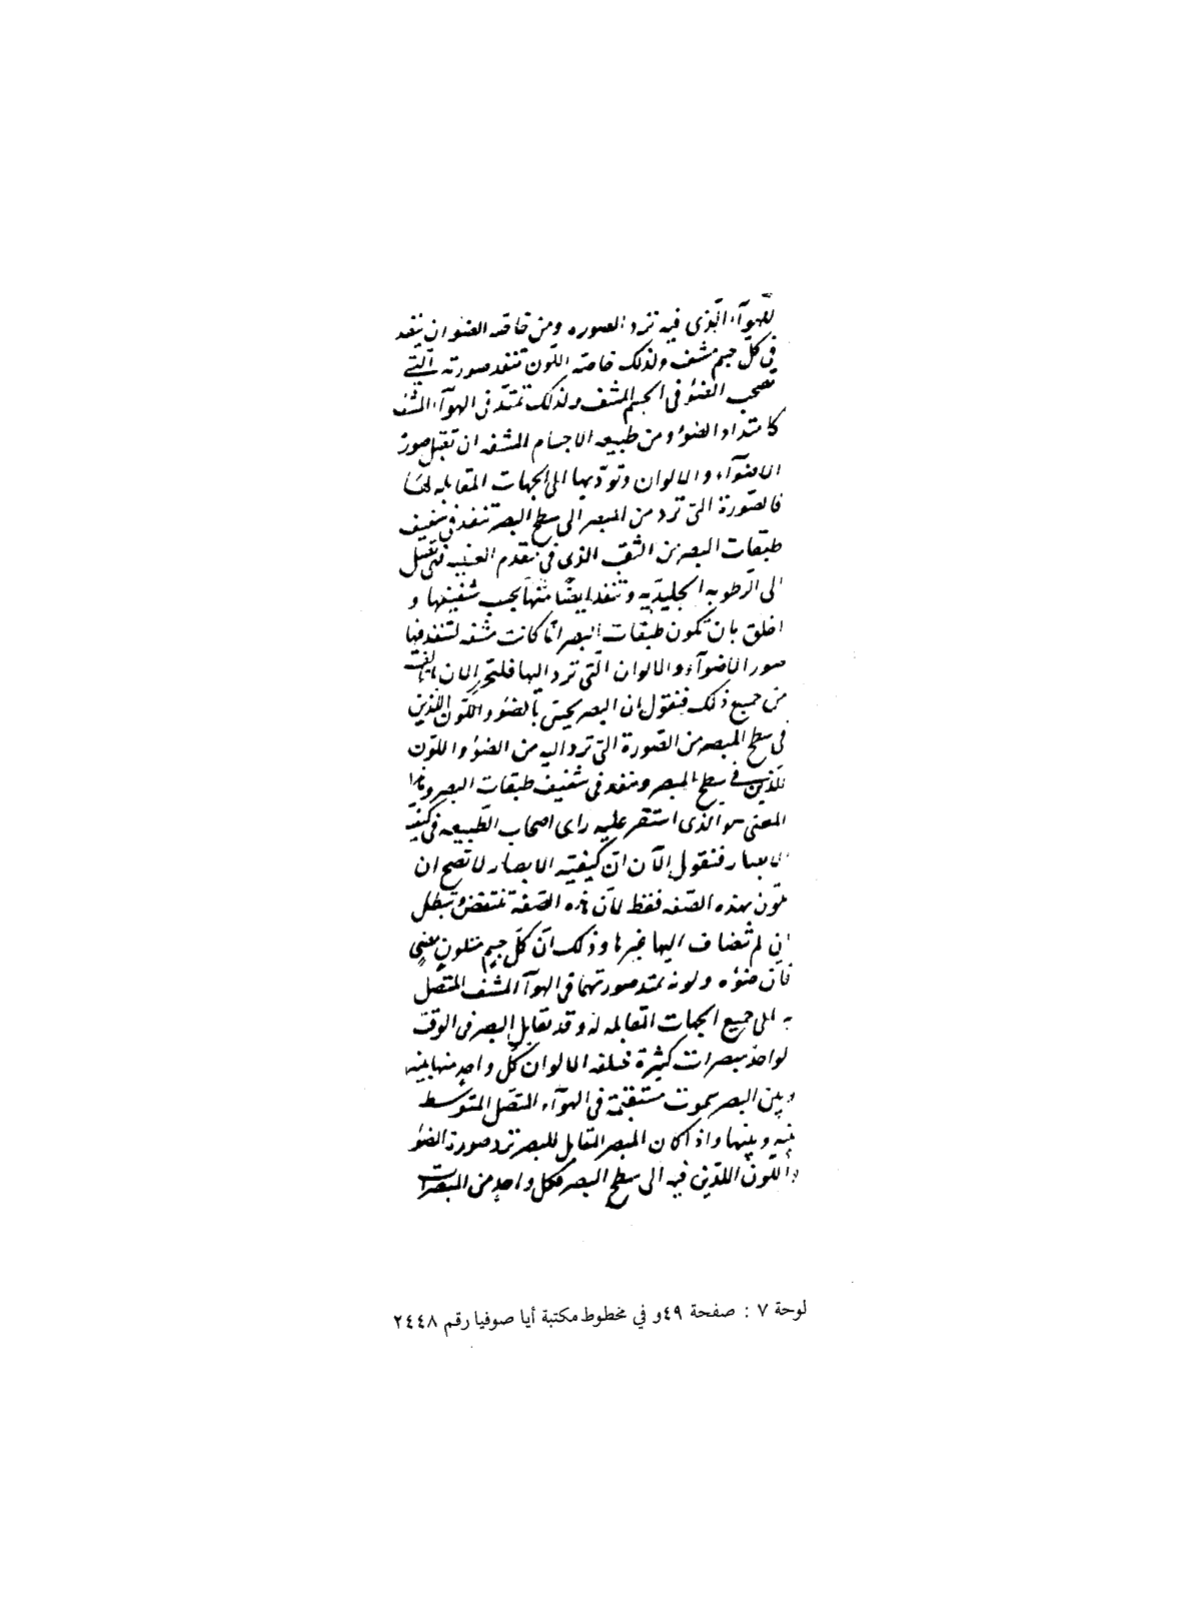 للهوآء الذى فيه ترد الصوره ومن خاصه الضوء ان ينفد
فى كل جسم مشف ولذلك خاصه اللون تنفد صورته التى
تصحب الضوء فى الجسم المشف ولذلك تمتد فى الهوآء المشف
كامتداد الضوء ومن طبيعه الاجسام المشفه ان تقبل صور
الاضوآء والالوان وتوديها الى الجهات المقابله لها
فالصورة التى ترد من المبصر الى سطح البصر تنفد فى شفيف
طبقات البصر من الثقب الذى فى مقدم العنبيه فتصل
الى الرطوبه الجليديه وتنفد ايضا فيها بحسب شفيفها و
اخلق بان تكون طبقات البصر انما كانت مشفه لتنفد فيها
صور الاضوآء والالوان التى ترد اليها فلنحرر الان
من جميع ذلك فنقول ان البصر يحس بالضوء واللون اللذين
فى سطح المبصر من الصورة التى ترد اليه من الضوء واللون
اللذين فى سطح المبصر وتنفد فى شفيف طبقات البصر وهذا
المعنى هو الذى استقر عليه راى اصحاب الطبيعه فى كيفيه
الابصار فنقول الآن ان كيفية الابصار لا تصح ان
تكون بهذه الصفه فقط لان هذه الصفة تنتقض وتبطل
ان لم تضاف اليها غيرها وذلك ان كل جسم متلون مضىء
فان ضوءه ولونه تمتد صورتهما فى الهوآ المشف المتصل
به الى جميع الجهات المقابله له وقد تقابل البصر فى الوقت
الواحد مبصرات كثيرة مختلفه الالوان كل واحد منها بينه
وبين البصر سموت مستقيمة فى الهوآء المتصل المتوسط
بينه وبينها واذا كان المبصر المقابل للبصر ترد صورة الضوء
واللون اللذين فيه الى سطح البصر فكل واحد من المبصرات
لوحة ٧ : صفحة ٤٩و في مخطوط مكتبة أيا صوفيا رقم ٢٤٤٨